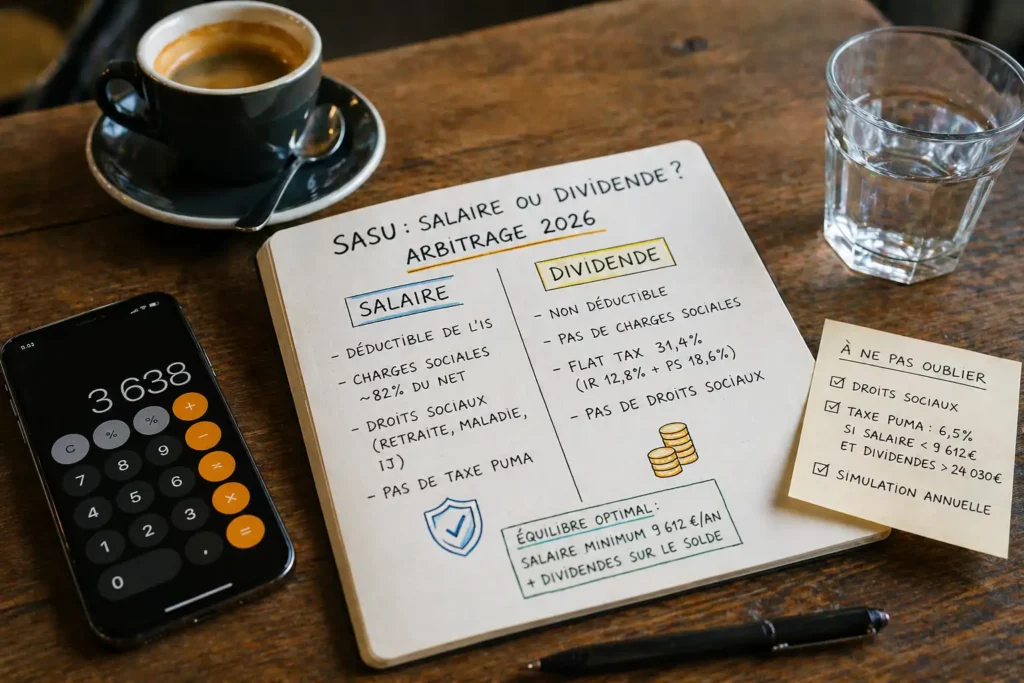 SASU : SALAIRE OU DIVIDENDE ?
ARBITRAGE 2026
SALAIRE
- DÉDUCTIBLE DE L'IS
- CHARGES SOCIALES
~82% DU NET
- DROITS SOCIAUX
(RETRAITE, MALADIE,
IJ)
- PAS DE TAXE PUMA
DIVIDENDE
- NON DÉDUCTIBLE
- PAS DE CHARGES SOCIALES
- FLAT TAX 31,4%
(IR 12,8% + PS 18,6%)
- PAS DE DROITS SOCIAUX
ÉQUILIBRE OPTIMAL :
SALAIRE MINIMUM 9 612 €/AN
+ DIVIDENDES SUR LE SOLDE
À NE PAS OUBLIER
DROITS SOCIAUX
TAXE PUMA : 6,5%
SI SALAIRE < 9 612€
ET DIVIDENDES > 24 030€
SIMULATION ANNUELLE
3 638
C % % +
7 8 9 −
4 5 6 ≈
1 2 3 ×
0 , =